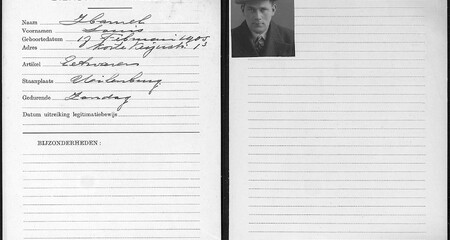 Naam Hamel
Voornamen Louis
Geboortedatum 19 Februari 1905
Adres Korte 1s
Artikel Eetwaren
Staanplaats Uilenburg
Gedurende Zondag
Datum uitreiking legitimatiebewijs
BIJZONDERHEDEN: